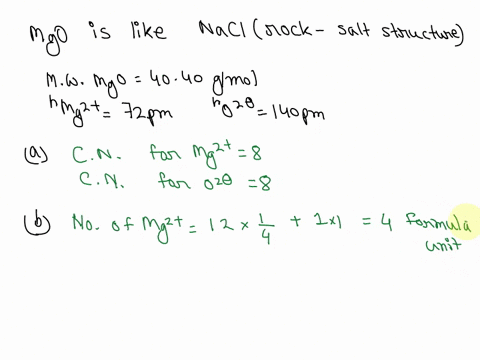 MgO is like NaCl (rock-salt structure)
M.W. MgO = 40.40 g/mol
rMg²⁺ = 72pm rO²⊖ = 140pm
(a) C.N. for Mg²⁺ = 8
C.N. for O²⊖ = 8
(b) No. of Mg²⁺ = 12 × 1/4 + 1×1 = 4 formula
unit